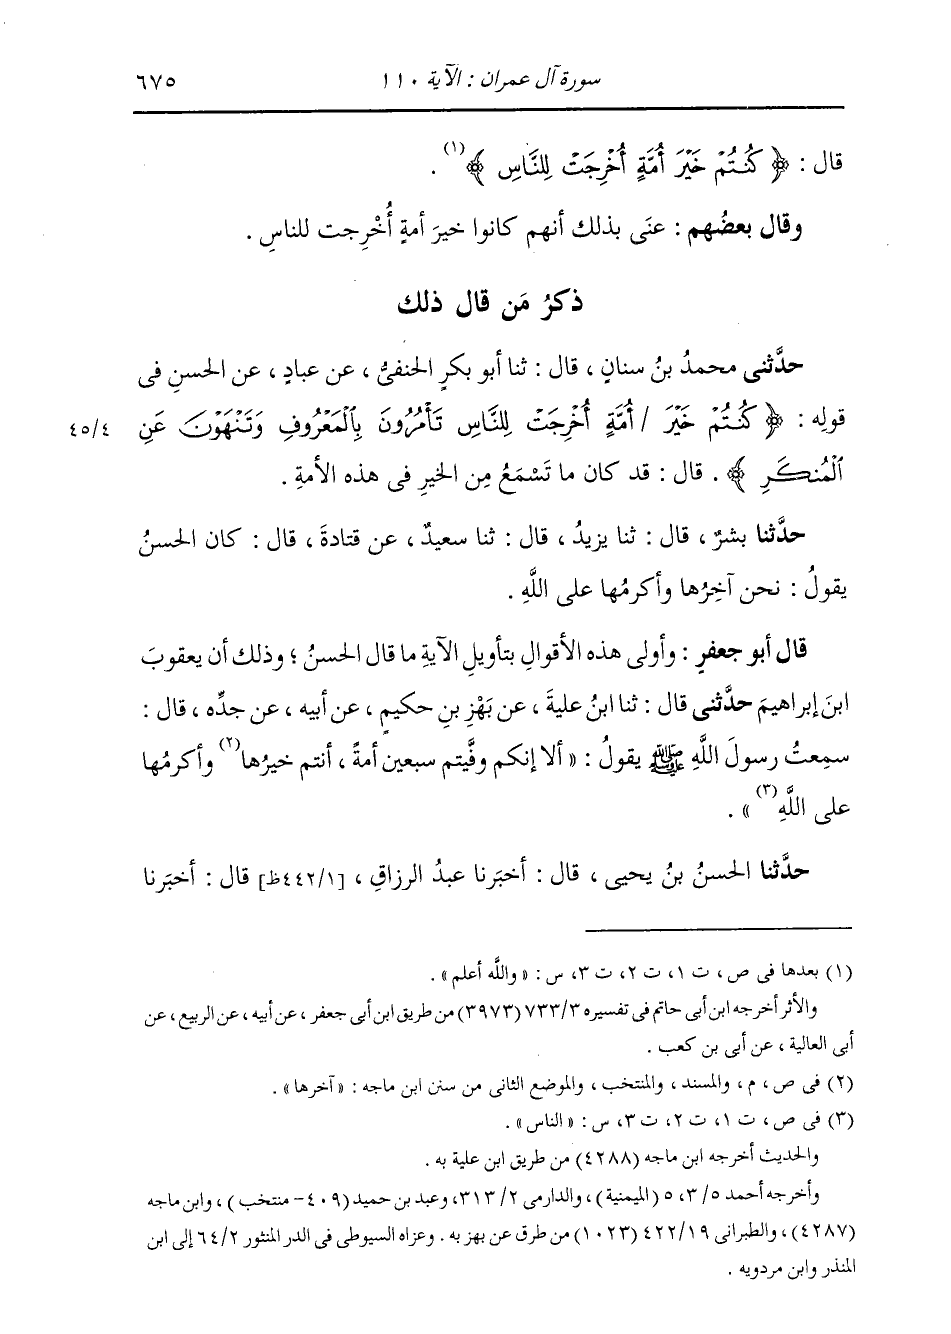 سورة آل عمران : الآية ١١٠ ٦٧٥
قال : ﴿ كُنتُمْ خَيْرَ أُمَّةٍ أُخْرِجَتْ لِلنَّاسِ ﴾(١) .
وقال بعضُهم : عنَى بذلك أنهم كانوا خيرَ أمةٍ أُخْرِجت للناسِ .
ذكرُ مَن قال ذلك
حدَّثنى محمدُ بنُ سنانٍ ، قال : ثنا أبو بكرٍ الحنفىُّ ، عن عبادٍ ، عن الحسنِ فى
قولِه : ﴿ كُنتُمْ خَيْرَ / أُمَّةٍ أُخْرِجَتْ لِلنَّاسِ تَأْمُرُونَ بِالْمَعْرُوفِ وَتَنْهَوْنَ عَنِ ٤٥/٤
الْمُنكَرِ ﴾ . قال : قد كان ما تَسْمَعُ مِن الخيرِ فى هذه الأمةِ .
حدَّثنا بشرٌ ، قال : ثنا يزيدُ ، قال : ثنا سعيدٌ ، عن قتادةَ ، قال : كان الحسنُ
يقولُ : نحن آخِرُها وأكرمُها على اللَّهِ .
قال أبو جعفرٍ : وأولى هذه الأقوالِ بتأويلِ الآيةِ ما قال الحسنُ ؛ وذلك أن يعقوبَ
ابنَ إبراهيمَ حدَّثنى قال : ثنا ابنُ عليةَ ، عن بَهْزِ بنِ حكيمٍ ، عن أبيه ، عن جدِّه ، قال :
سمِعتُ رسولَ اللَّهِ ﷺ يقولُ : « ألا إنكم وفَّيتم سبعين أمةً ، أنتم خيرُها(٢) وأكرمُها
على اللَّهِ(٣) » .
حدَّثنا الحسنُ بنُ يحيى ، قال : أخبَرنا عبدُ الرزاقِ ، [٤٤٢/١ظ] قال : أخبَرنا
(١) بعدها فى ص ، ت ١، ت ٢، ت ٣، س : « واللَّه أعلم » .
والأثر أخرجه ابن أبى حاتم فى تفسيره ٧٣٣/٣ (٣٩٧٣) من طريق ابن أبى جعفر ، عن أبيه ، عن الربيع ، عن
أبى العالية ، عن أبى بن كعب .
(٢) فى ص ، م ، والمسند ، والمنتخب ، والموضع الثانى من سنن ابن ماجه : « آخرها » .
(٣) فى ص ، ت ١، ت ٢، ت ٣، س : « الناس » .
والحديث أخرجه ابن ماجه (٤٢٨٨) من طريق ابن علية به .
وأخرجه أحمد ٣/٥، ٥ (الميمنية) ، والدارمى ٣١٣/٢، وعبد بن حميد (٤٠٩- منتخب) ، وابن ماجه
(٤٢٨٧) ، والطبرانى ٤٢٢/١٩ (١٠٢٣) من طرق عن بهز به . وعزاه السيوطى فى الدر المنثور ٦٤/٢ إلى ابن
المنذر وابن مردويه .